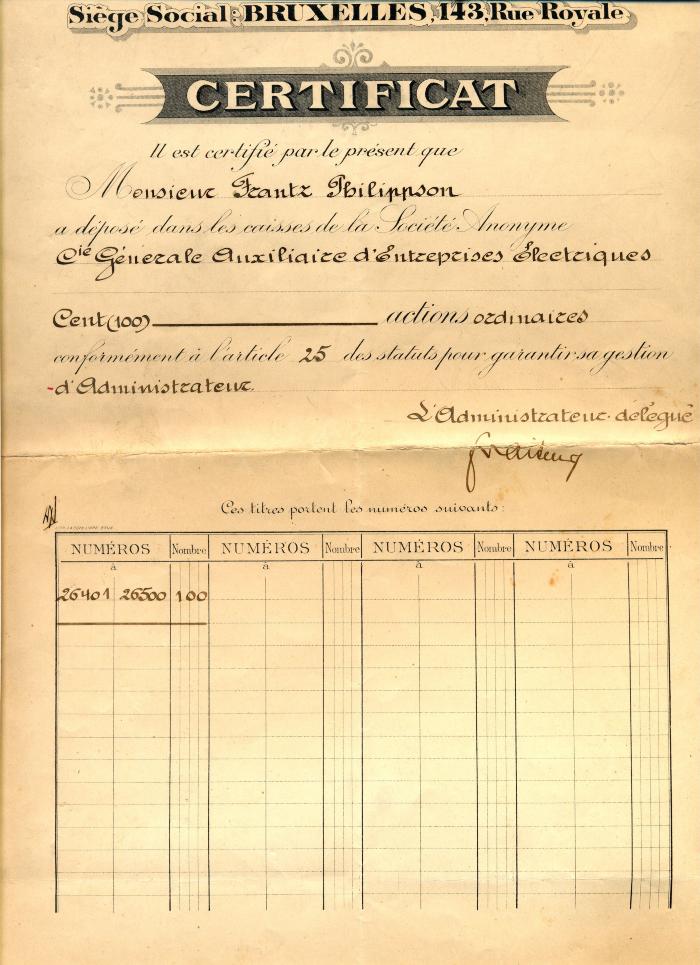 Siège Social: BRUXELLES, 143, Rue Royale
CERTIFICAT
Il est certifié par le présent que
Monsieur Frantz Philippson
a déposé dans les caisses de la Société Anonyme
Cie Générale Auxiliaire d'Entreprises Électriques
Cent (100) actions ordinaires
conformément à l'article 25 des statuts pour garantir sa gestion
-d'Administrateur.
L'Administrateur-délégué
Ces titres portent les numéros suivants:
NUMÉROS Nombre NUMÉROS Nombre NUMÉROS Nombre NUMÉROS Nombre
à à à à
26401 26500 100